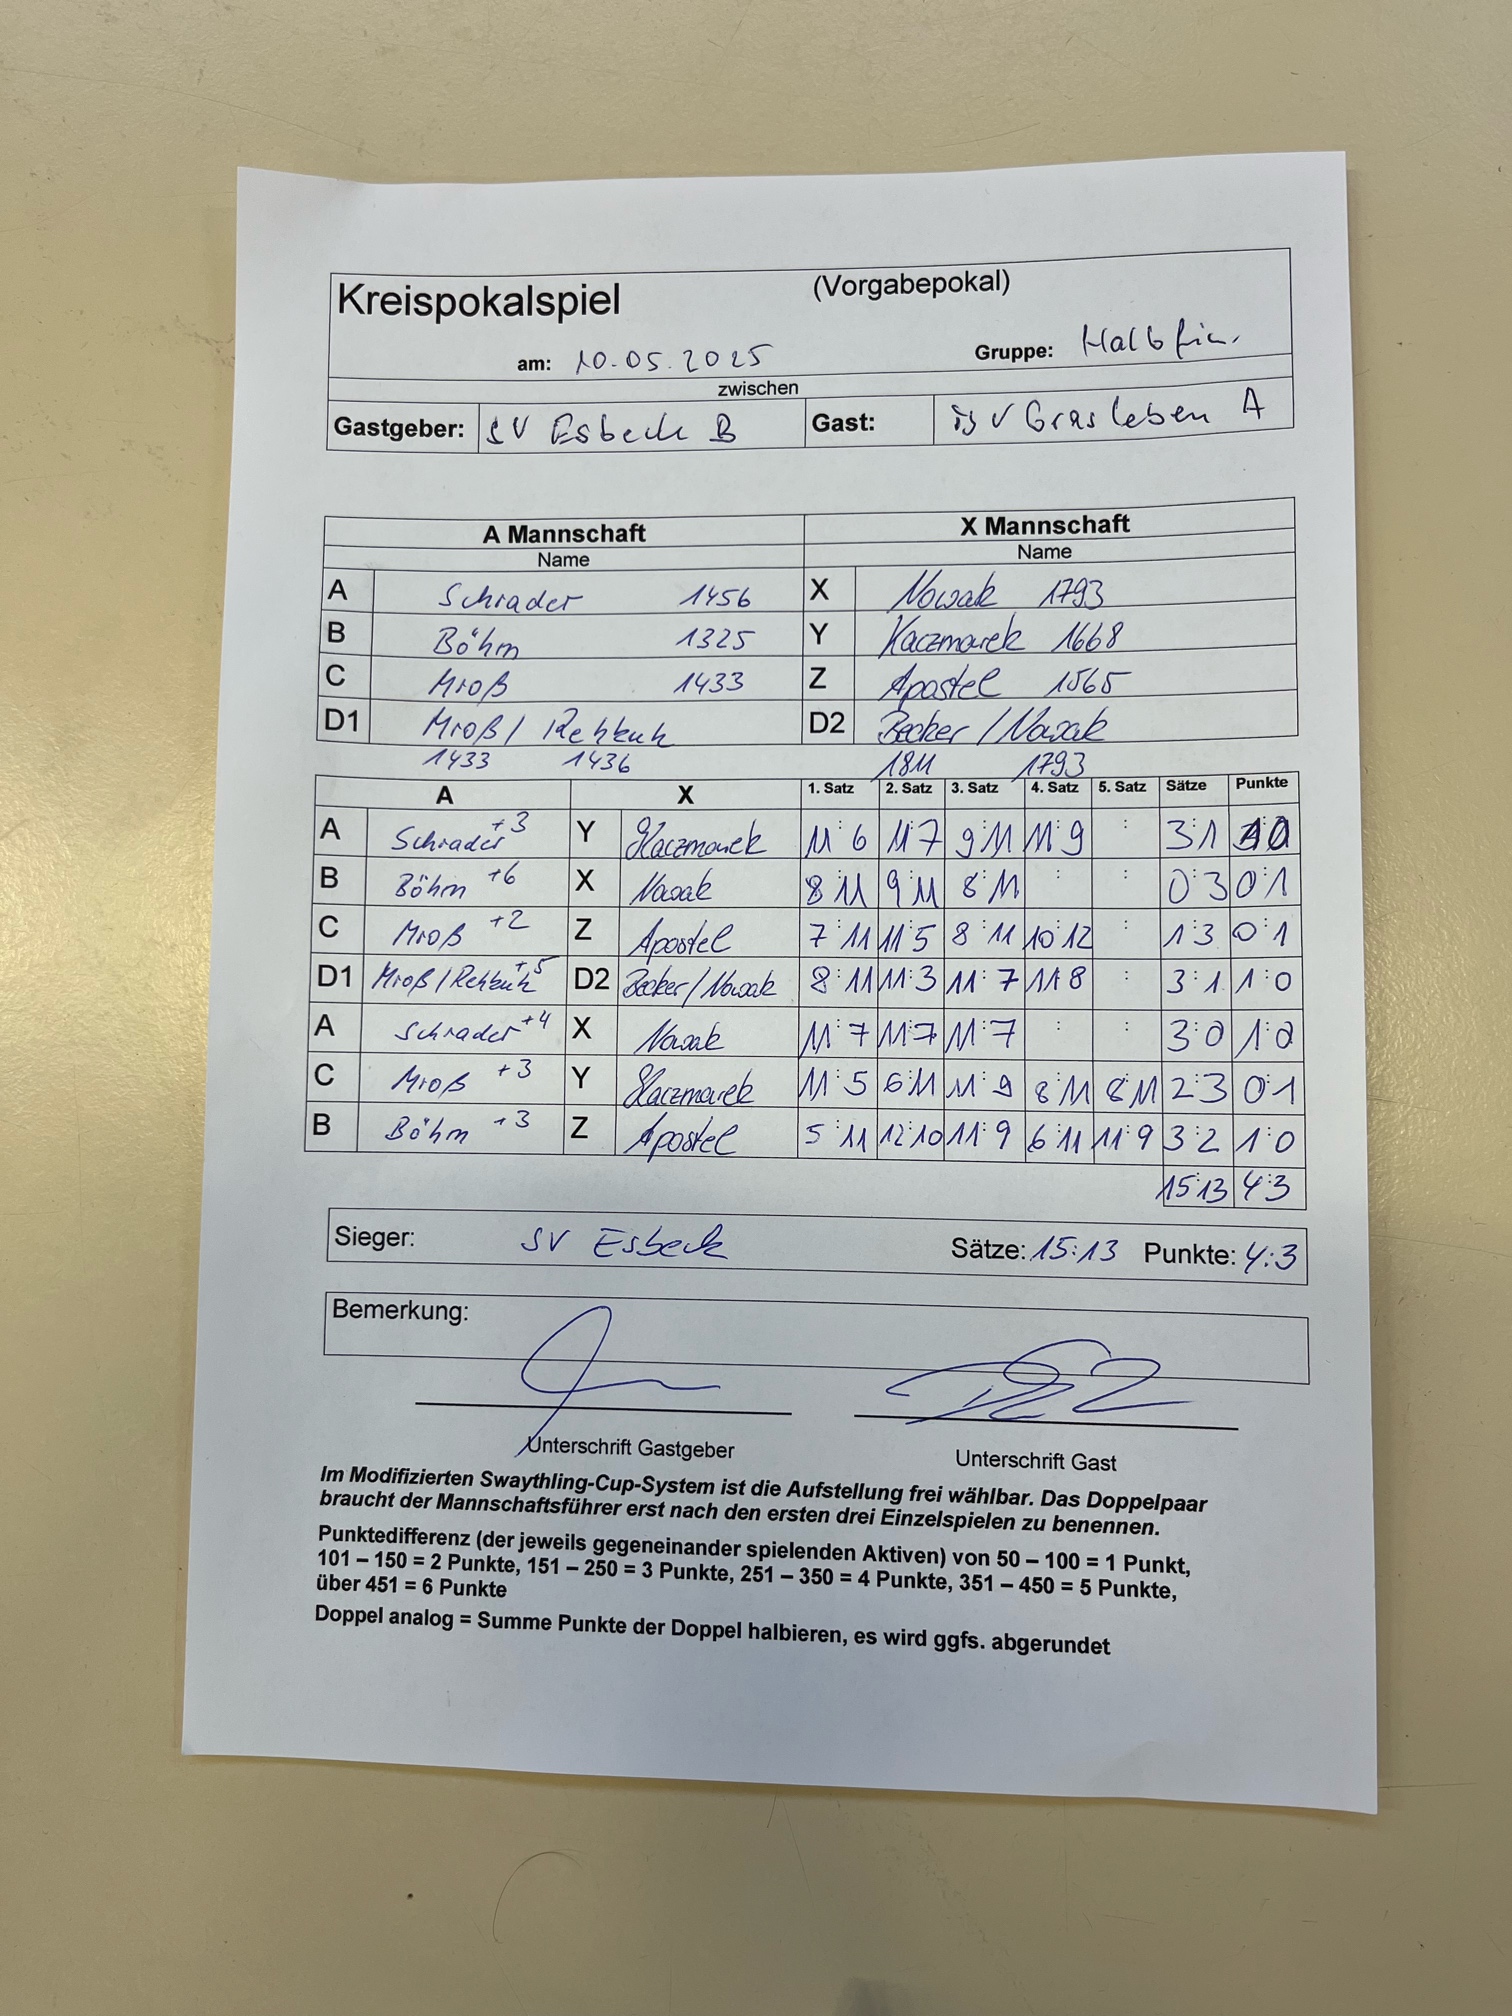 Kreispokalspiel (Vorgabepokal)
am: 10.05.2025 Gruppe: Halbfin.
zwischen
Gastgeber: SV Esbeck B Gast: TSV Grasleben A
A Mannschaft X Mannschaft
Name Name
A Schrader 1456 X Nowak 1793
B Böhm 1325 Y Kaczmarek 1668
C Mroß 1433 Z Apostel 1565
D1 Mroß / Rehkuh D2 Becker / Nowak
1433 1436 1811 1793
A X 1. Satz 2. Satz 3. Satz 4. Satz 5. Satz Sätze Punkte
A Schrader +3 Y Kaczmarek 11:6 11:7 9:11 11:9 : 3:1 1:0
B Böhm +6 X Nowak 8:11 9:11 8:11 : : 0:3 0:1
C Mroß +2 Z Apostel 7:11 11:5 8:11 10:12 : 1:3 0:1
D1 Mroß / Rehkuh +5 D2 Becker / Nowak 8:11 11:3 11:7 11:8 : 3:1 1:0
A Schrader +4 X Nowak 11:7 11:7 11:7 : : 3:0 1:0
C Mroß +3 Y Kaczmarek 11:5 6:11 11:9 8:11 8:11 2:3 0:1
B Böhm +3 Z Apostel 5:11 12:10 11:9 6:11 11:9 3:2 1:0
15:13 4:3
Sieger: SV Esbeck Sätze: 15:13 Punkte: 4:3
Bemerkung:
Unterschrift Gastgeber Unterschrift Gast
Im Modifizierten Swaythling-Cup-System ist die Aufstellung frei wählbar. Das Doppelpaar
braucht der Mannschaftsführer erst nach den ersten drei Einzelspielen zu benennen.
Punktedifferenz (der jeweils gegeneinander spielenden Aktiven) von 50 – 100 = 1 Punkt,
101 – 150 = 2 Punkte, 151 – 250 = 3 Punkte, 251 – 350 = 4 Punkte, 351 – 450 = 5 Punkte,
über 451 = 6 Punkte
Doppel analog = Summe Punkte der Doppel halbieren, es wird ggfs. abgerundet